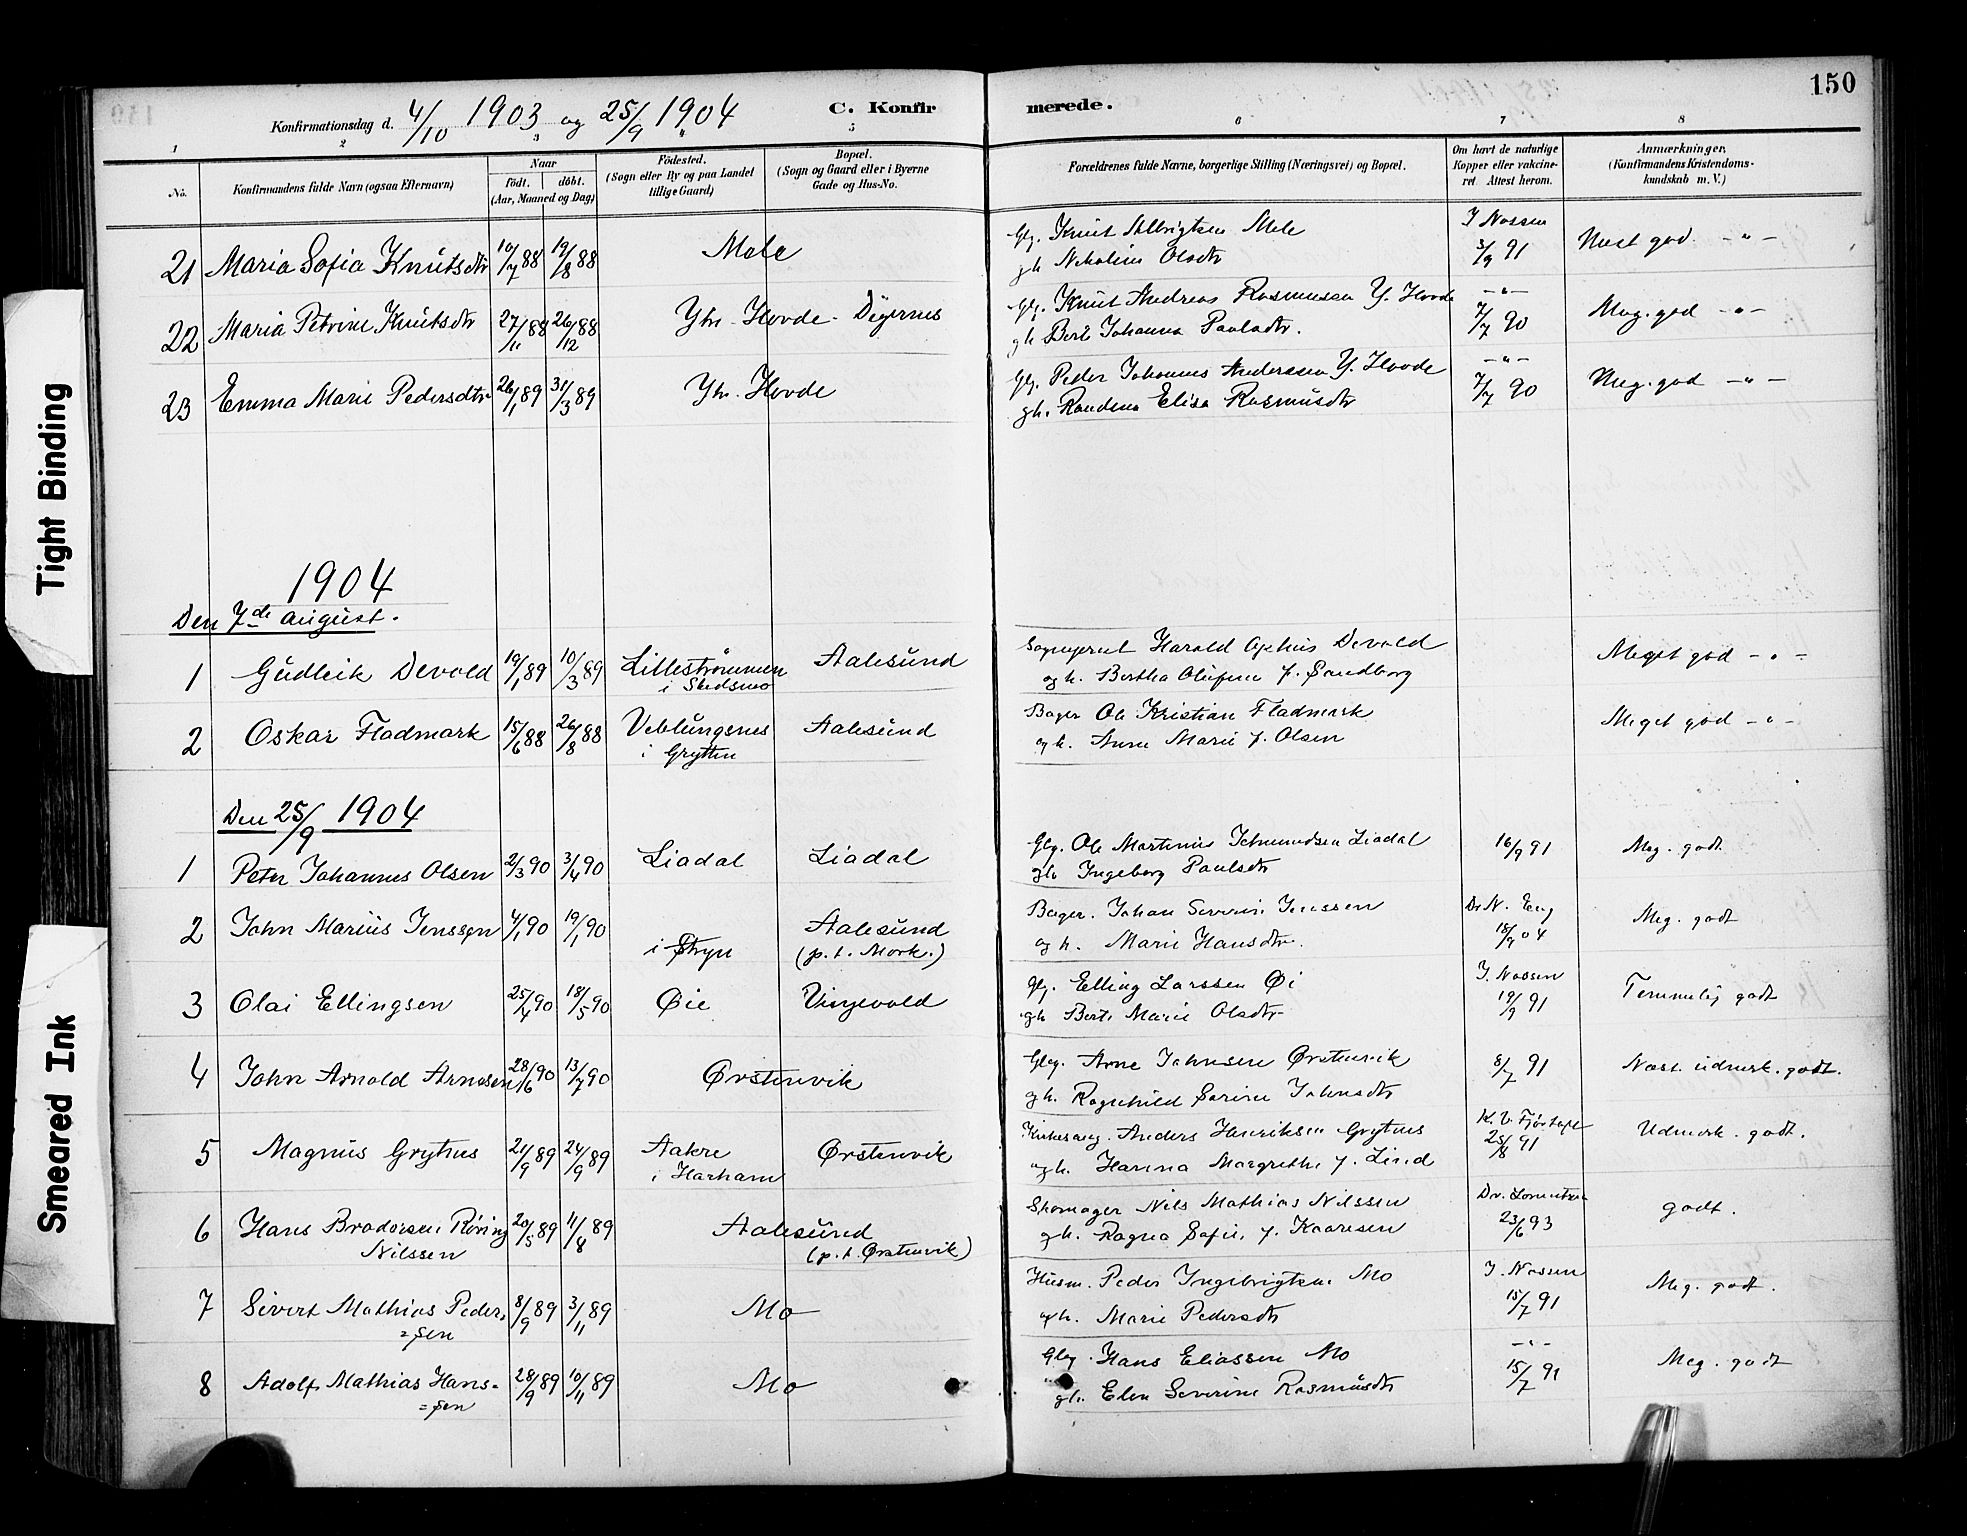 150
Konfirmationsdag d. 4/10 1903 og 25/9 1904
C. Konfirmerede.
1 2 3 4 5 6 7 8
No. Konfirmandens fulde Navn (ogsaa Efternavn) Naar födt. döbt. (Aar, Maaned og Dag) Födested. (Sogn eller By og paa Landet tillige Gaard) Bopæl. (Sogn og Gaard eller i Byerne Gade og Hus-No. Forældrenes fulde Navne, borgerlige Stilling (Næringsvei) og Bopæl. Om havt de naturlige Kopper eller vakcineret Attest herom. Anmærkninger, (Konfirmandens Kristendomskundskab m. V.)
21 Maria Sofia Knutsdtr 10/7 88 19/8 88 Mele Gbg. Knut Mele I Nossen
gh Olsdtr 3/9 91 Næst god -"-
22 Maria Petrine Knutsdtr 27/11 88 26/12 88 Ytr. Hovde - Digernes Gbg. Knut Andreas Rasmussen Y. Hovde -"-
gh Berte Johanna Paulsdtr. 7/7 90 Meg. god -"-
23 Emma Marie Pedersdtr 26/1 89 31/3 89 Ytr. Hovde Gbg. Peder Johannes Anderssen Y. Hovde -"-
gh. Randena Elisa Rasmusdtr 7/7 90 Meg. god -"-
1904
Den 7de august.
1 Gudleik Devold 19/1 89 10/3 89 Lillestrømmen Aalesund Sogneprest Harald Devold Meget god -"-
i Skedsmo og h. Bertha Olufine f. Sandborg
2 Oskar Fladmark 15/6 88 26/8 88 Veblungsnes Aalesund Bager Ole Kristian Fladmark Meget god -"-
i Grytten og h. Anne Marie f. Olsen
Den 25/9 1904
1 Peter Johannes Olsen 2/3 90 3/4 90 Liadal Liadal Gbg. Ole Martinus Liadal 16/9 91 Meg. godt
gh Ingeborg Paulsdtr
2 John Marius Jenssen 4/1 90 19/1 90 Aalesund Bager. Johan Severin Jenssen Dr N. Eng Meg. godt
i Stryn (p. t. Mork.) og h. Marie Hansdtr. 18/9 04
3 Olai Ellingsen 25/4 90 18/5 90 Øie Vingevold Gbg. Elling Larssen Øi I. Nossen Temmelig godt
gh Berte Marie Olsdtr 19/9 91
4 John Arnold Arnessen 28/6 90 13/7 90 Ørstenvik Gbg. Arne Johnsen Ørstenvik 8/7 91 Næst. udmerk. godt.
gh. Ragnhild Sørine Johnsdtr
5 Magnus Grythus 21/9 89 24/9 89 Aakre Ørstenvik Kirkesang. Anders Henriksen Grythus K. V. Fjørtoft Udmerk. godt.
i Harham og h. Hanna Margrethe f. Lind 25/8 91
6 Hans Brodersen Röring 20/5 89 11/8 89 Aalesund Skomager Nils Mathias Nilssen Dr. Lorentzen godt.
Nilssen (p. t. Ørstenvik) gh. Ragna Sofie f. Kaaresen 23/6 93
7 Sivert Mathias Peder= 8/9 89 3/11 89 Mo Husm. Peder Ingebrigtsen Mo I. Nossen Meg. godt.
=sen og h. Marie Pedersdtr 15/7 91
8 Adolf Mathias Hans= 28/9 89 10/11 89 Mo Gbg. Hans Eliassen Mo -"- Meg. godt
=sen gh. Elen Severine Rasmusdtr 15/7 91
Tight Binding
Smeared Ink